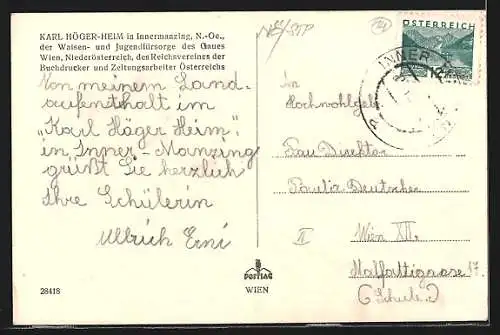 KARL HÖGER-HEIM in Innermanzing, N.-Oe.,
der Waisen- und Jugendfürsorge des Gaues
Wien, Niederösterreich, des Reichsvereines der
Buchdrucker und Zeitungsarbeiter Österreichs
Von meinem Land-
aufenthalt im
"Karl Höger Heim"
in Inner-Manzing
grüßt Sie herzlich
Ihre Schülerin
Ullrich Erni
28418
POSTIAG
WIEN
ÖSTERREICH
12
INNER
In
Hochwohlgeb.
Frau Direktor
Paula Deutscher
Wien XII.
II
Malfattigasse 17
(Schule)